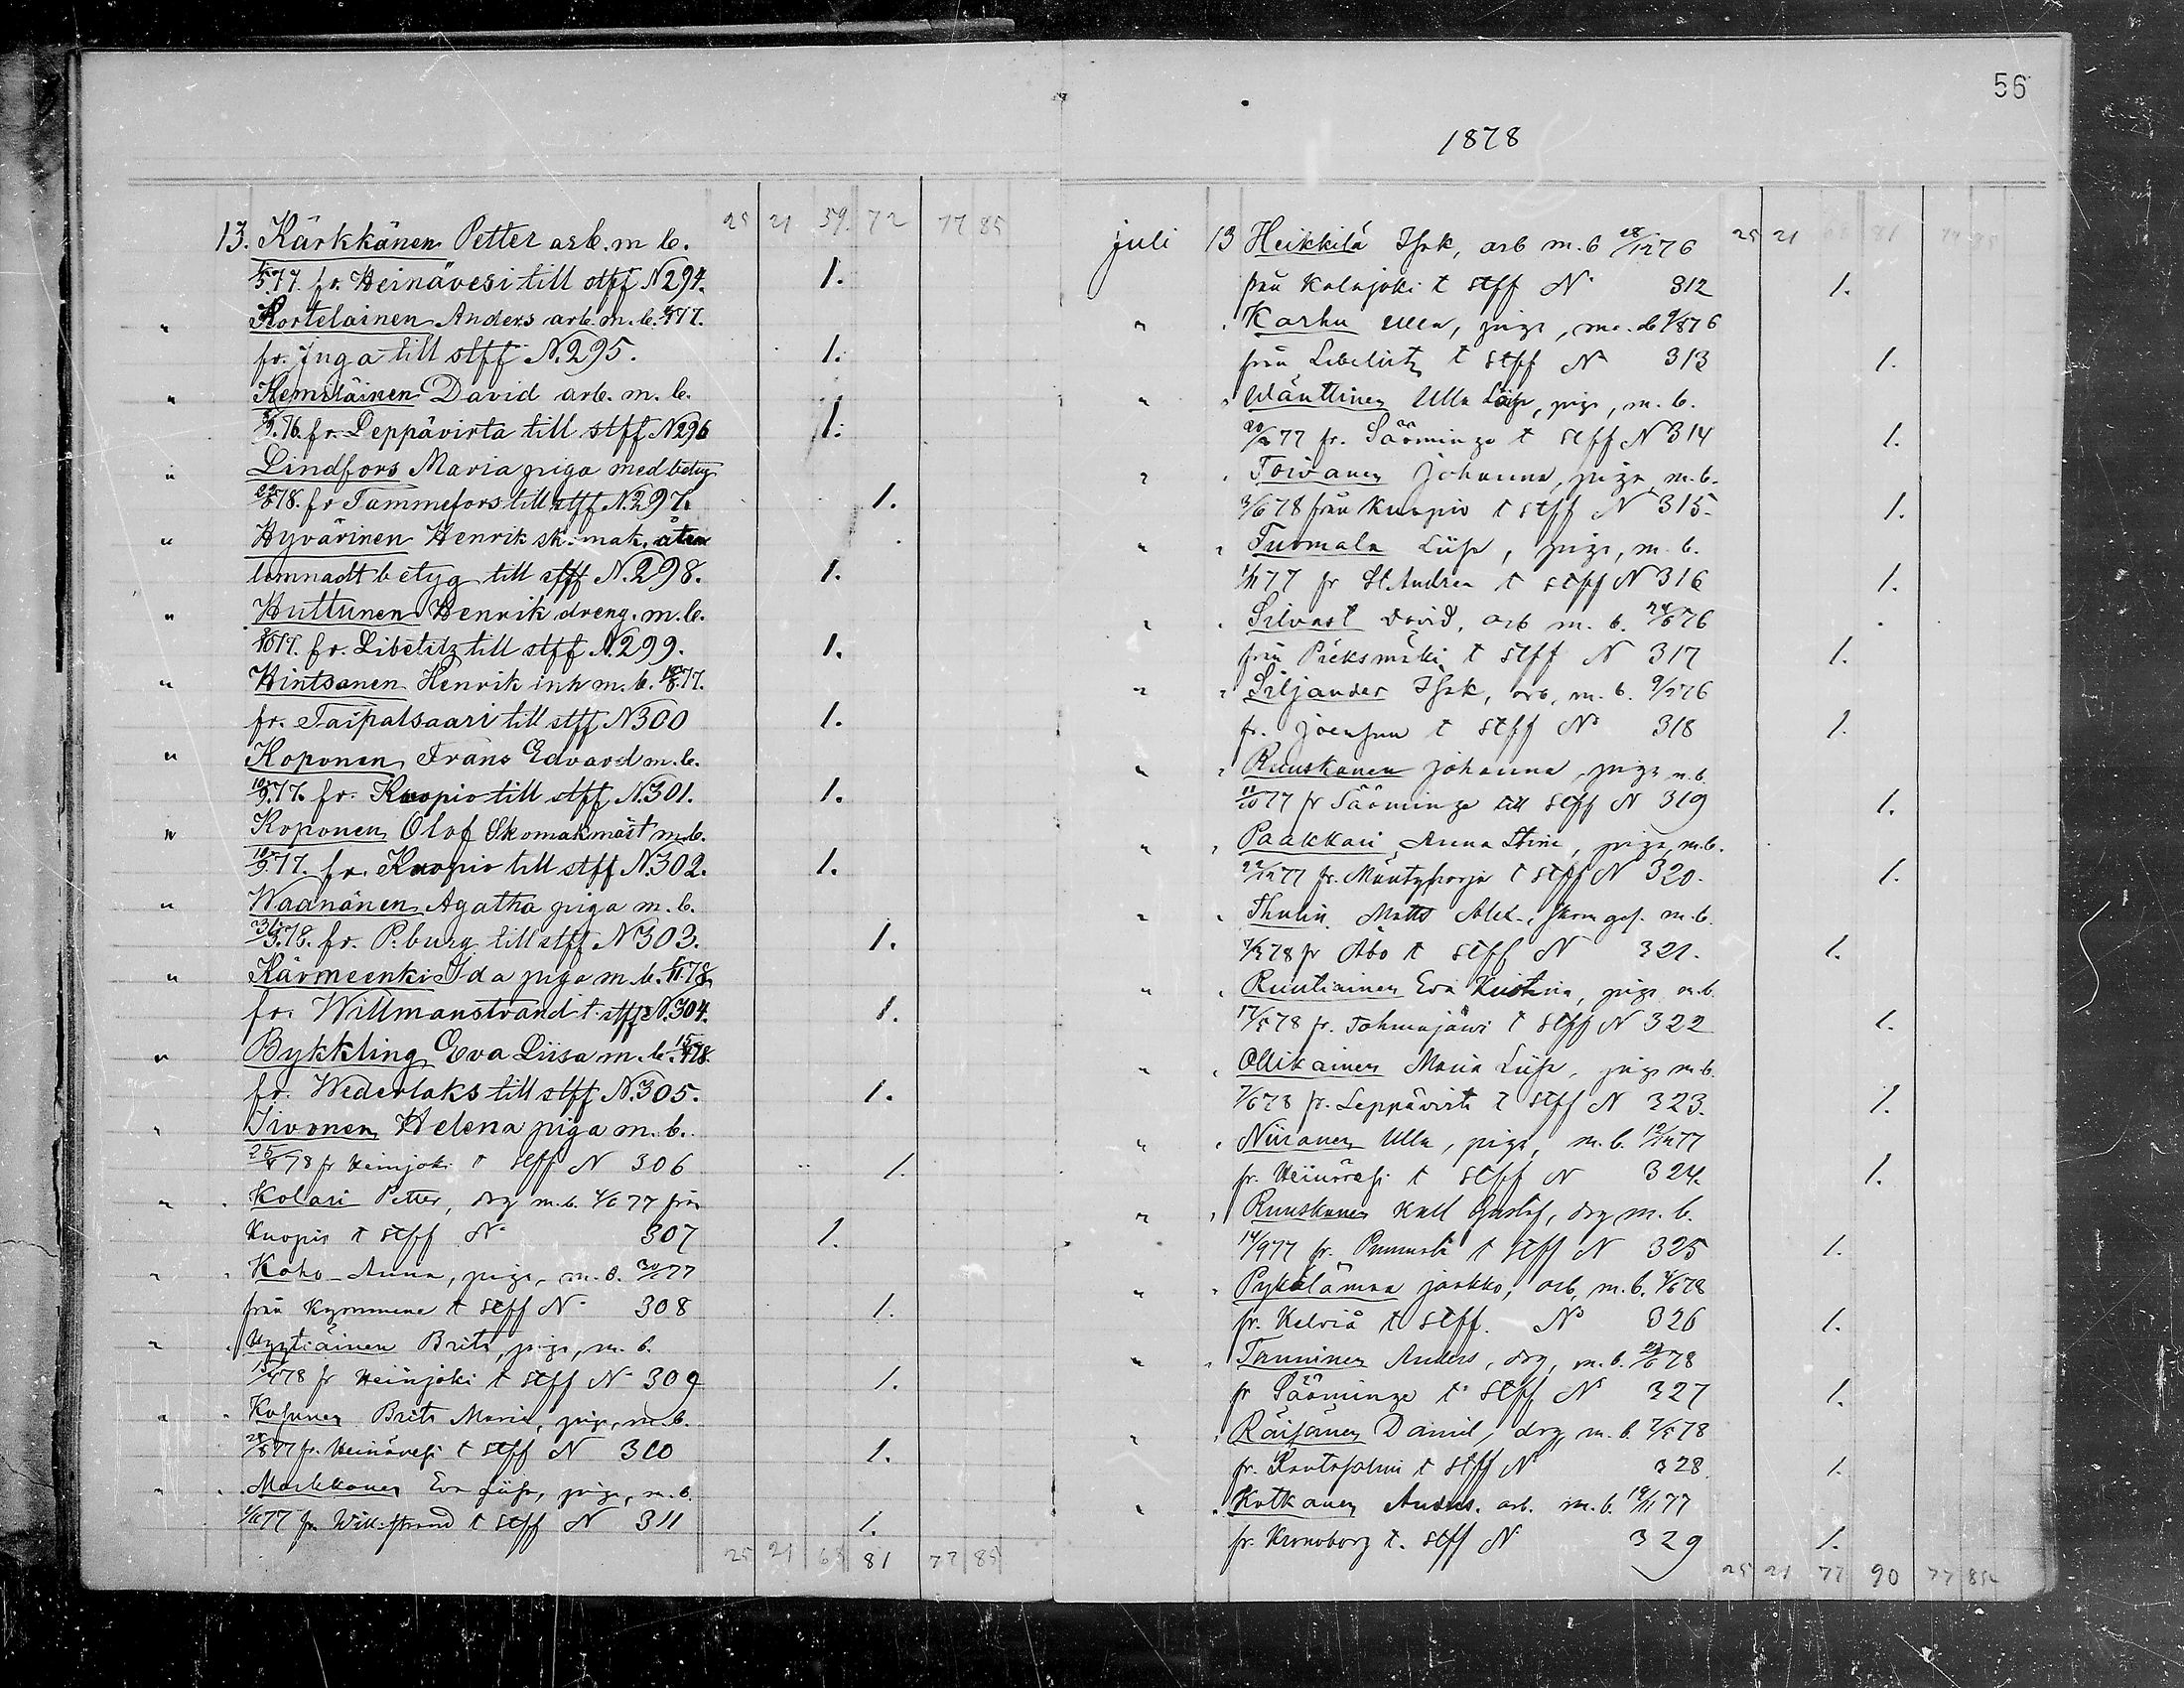 56
1878
25 21 59. 72 77 85
13. Kärkkänen Petter arb. m b.
77. fr. Heinävesi till stff N 294. 1.
" Kortelainen Anders arb. m. b. 77.
fr. Inga till stff N. 295. 1.
" Hemiläinen David arb. m. b.
9.76. fr. Leppävirta till stff N 296 1.
" Lindfors Maria piga med betyg
78. fr Tammefors till stff N. 297. 1.
" Hyvärinen Henrik skomak. åter
lemnadt betyg till stff N. 298. 1.
" Huttunen Henrik dreng. m. b.
77. fr. Libelitz till stff N. 299. 1.
" Hintsanen Henrik inh m. b. 77.
fr. Taipalsaari till stff N 300 1.
" Koponen Frans Edvard m. b.
10/9.77. fr. Kuopio till stff N. 301. 1.
" Koponen Olof Skomakmäst m. b.
10/9.77. fr. Kuopio till stff N. 302. 1.
" Waanänen Agatha piga m. b.
78. fr. P.burg till stff N 303. 1.
" Kärmeenki Ida piga m. b. 78
fr. Willmanstrand t. stff N. 304. 1.
" Bykkling Eva Liisa m. b. 15/78
fr. Wederlaks till stff N. 305. 1.
" Iivonen Helena piga m. b.
78 fr Heinjoki t stff N 306 1.
" Kolari Petter, drg m. b. 4/6 77 frn
Kuopio t stff N 307 1.
" Koho Anna, piga, m. b. 77
frn Kymmene t stff N 308 1.
" Hyytiäinen Brita, piga, m. b.
78 fr Heinjoki t stff N 309 1.
" Kosunen Brita Maria, piga, m. b.
77 fr. Heinävesi t stff N 310 1.
" Markkanen Eva Liisa, piga, m. b.
77 fr. Will.strand t stff N 311 1.
25 21 68 81 77 85
25 21 68 81 77 85
juli 13 Heikkilä Isak, arb m. b 28/12 76
från Kalajoki t stff N 312 1.
" Karhu Ulla, piga, m. b 9/8 76
från Libelitz t stff N 313 1.
" Wänttinen Ulla Liisa, piga, m. b.
77 fr. Sääminge t stff N 314 1.
" Toivanen Johanna, piga m. b.
3/6 78 från Kuopio t stff N 315. 1.
" Tuomala Liisa, piga, m. b.
77 fr St Andrea t stff N 316 1.
" Silvast David, arb m. b. 76
från Pieksmäki t stff N 317 1.
" Siljander Isak, arb, m. b. 76
fr. Joensuu t stff No 318 1.
" Ruuskanen Johanna, piga m. b.
11/10 77 fr Sääminge till stff N 319 1.
" Paakkari Anna Stina, piga m. b.
22/12 77 fr. Mäntyharju t stff N 320. 1.
" Thulin Matts Alex., skom ges. m. b.
78 fr Åbo t stff N 321. 1.
" Runtiainen Eva Kristina, piga m. b.
17/5 78 fr. Tohmajärvi t stff N 322 1.
" Ollikainen Maria Liisa, piga m. b.
7/6 78 fr. Leppävirta t stff N 323. 1.
" Niiranen Ulla, piga, m. b. 12/12 77
fr. Heinävesi t stff N 324. 1.
" Ruuskanen Karl Gustaf, drg m. b.
14/9 77 fr. Pumala t stff N 325 1.
" Pykälämaa Jaakko, arb, m. b. 4/6 78
fr. Kelviå t stff. No 326 1.
" Tanninen Anders, drg, m. b. 78
fr Sääminge t stff N 327 1.
" Räisänen Daniel, drg m. b. 7/5 78
fr. Rantasalmi t stff N 328 1.
" Kotkanen Anders. arb. m. b. 19/11 77
fr. Kronoborg t. stff N 329 1.
25 21 77 90 77 85